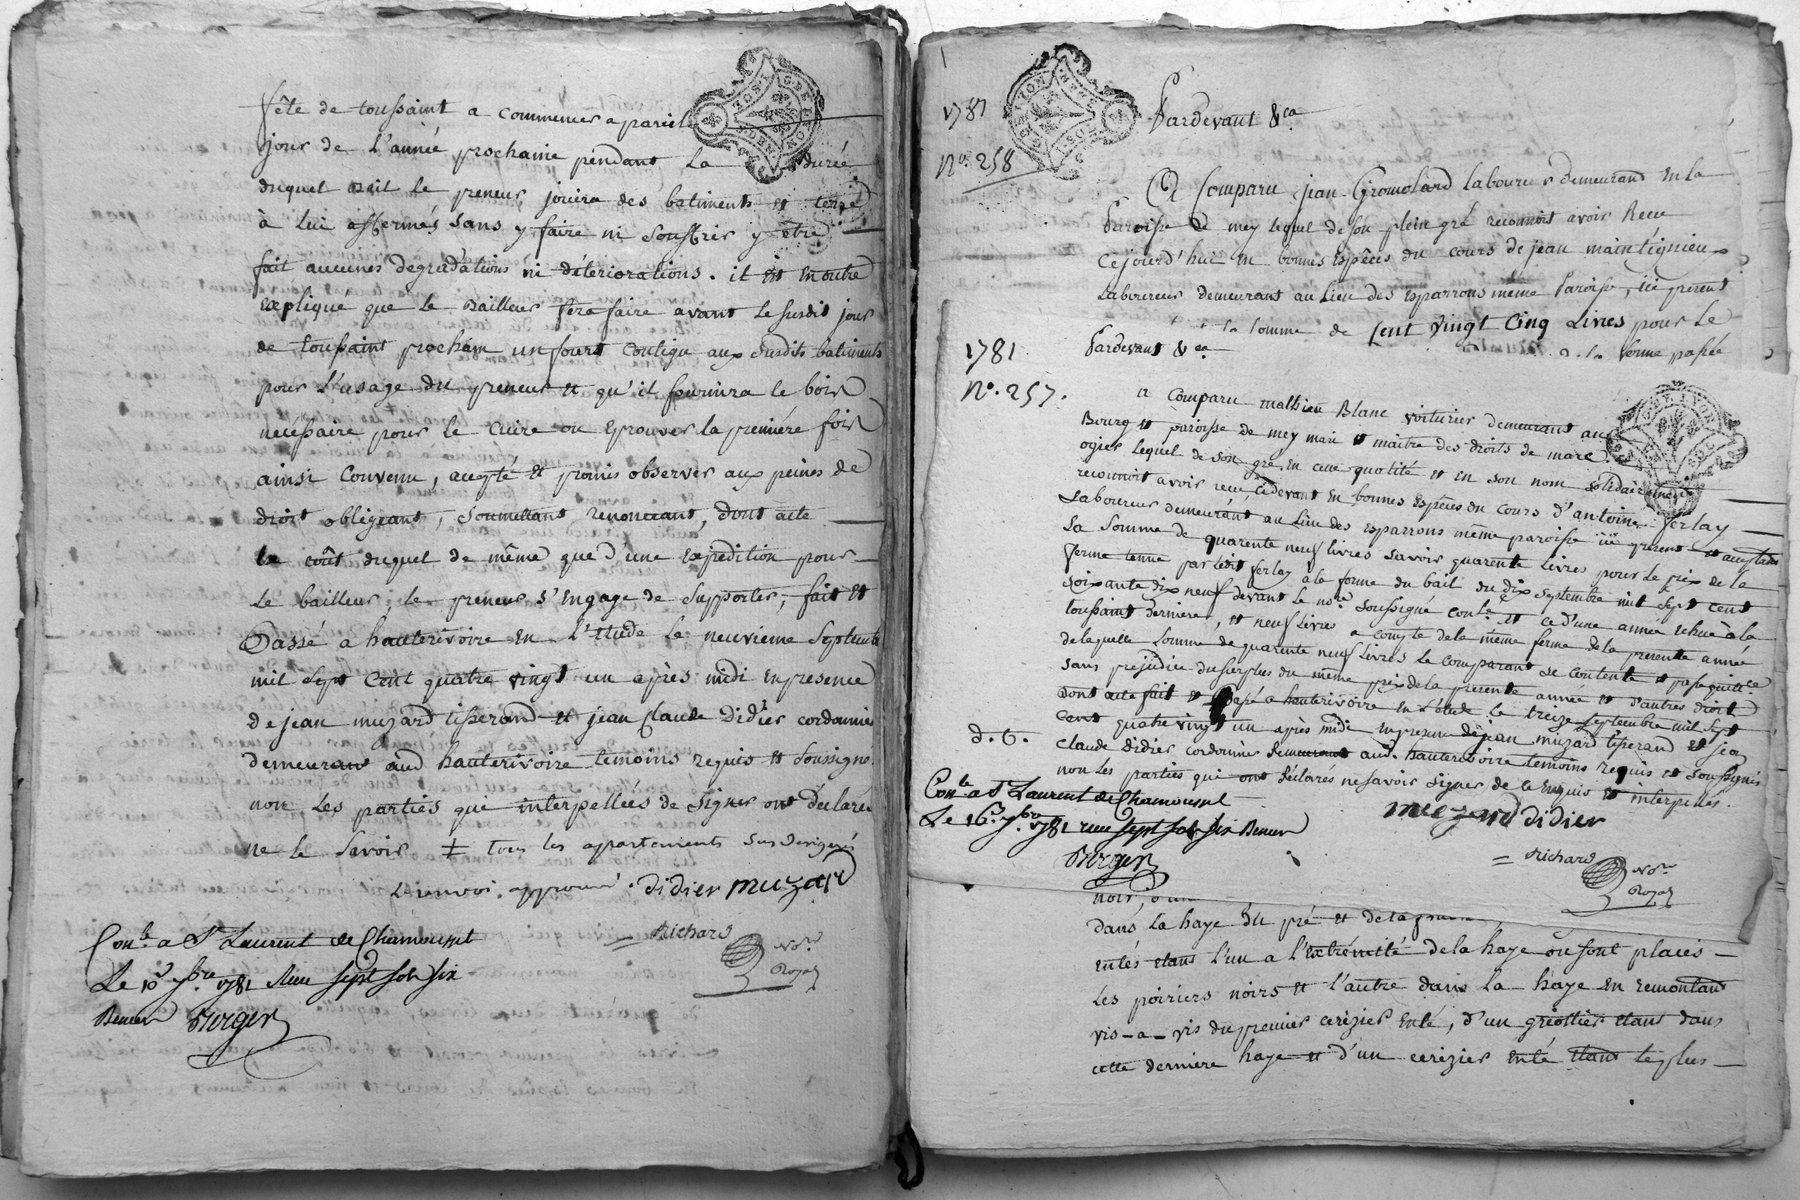 fête de toussaint a commencer a pareil
jour de l'année prochaine pendant la durée
duquel bail le preneur jouira des batiments et terre
à lui affermés sans y faire ni souffrir y être
fait aucunes degradations ni déteriorations. il est en outre
expliqué que le bailleur fera faire avant le susdit jour
de toussaint prochain un fourt contigu aux susdits batiments
pour l'usage du preneur et qu'il fournira le bois
nécessaire pour le cuire ou eprouver la première fois
ainsi convenu, accepté et promis observer aux peines de
droit obligeant, soumettant renonceant, dont acte
le coût duquel de même que d'une expedition pour
le bailleur, le preneur s'engage de supporter, fait et
Passé a hauterivoire en l'Etude le neuvieme Septembre
mil sept cent quatre vingt un après midi en presence
de jean muzard tisserand et jean Claude Didier cordonnier
demeurant aud hauterivoire temoins requis et soussignés
non les parties qui interpellées de signer ont déclaré
ne le savoir ‡ tous les appartements sus designés
le renvoi approuvé. didier muzard
Richard
No.re
Royal
Con.lé a S.t Laurent de Chamousset
Le 10 7bre 1781 Recu sept sols six
Denier
1781
N.o 258
Pardevant &.ca
A Comparu jean Gromolard laboureur demeurant en la
Paroisse de mey lequel de son plein gré reconnoit avoir Recu
cejourd'hui en bonnes espèces du cours de jean maintignieux
laboureur demeurant au lieu des esparrons même Paroisse, ici présent
la somme de Cent vingt Cinq Livres pour le
a la forme passée
1781
N.o 257.
Pardevant &.ca
A Comparu mathieu Blanc voiturier demeurant au
Bourg et paroisse de mey mari et maitre des droits de marie
ogier lequel de son gré en cette qualité et en son nom solidairement
reconnoit avoir recu cidevant en bonnes espèces du cours d'antoine ferlay
laboureur demeurant au lieu des esparrons même paroisse ici present et acceptant
la somme de quarente neuf livres savoir quarente livres pour le prix de la
ferme tenue par ledit ferlay a la forme du bail du dix septembre mil sept cent
soixante dix neuf devant le no.re soussigné con.lé et ce d'une année echue à la
toussaint derniere, et neuf livres a compte de la même ferme de la presente année
de laquelle somme de quarente neuf livres le comparant se contente et passe quitt.ce
sans prejudice du surplus du même prix de la presente année et d'autres droit
dont acte fait et Passé a hauterivoire en l'étude le treize septembre mil sept
cent quatre vingt un après midi en presence de jean muzard tisserand et jean
claude didier cordonnier demeurant aud. hauterivoire temoins requis et soussignés
non les parties qui ont déclaré ne savoir signer de ce enquis et interpellés.
d. G.
muzard didier
Richard
No.re
Royal
Con.lé a S.t Laurent de Chamousset
Le 16 7bre 1781 recu sept sols six Denier
dans la haye du pré et de la
entés etant l'un a l'extrémité de la haye ou sont placés
les poiriers noirs et l'autre dans la haye en remontant
vis-a-vis du premier cerizier enté, d'un griottier etant dans
cette derniere haye et d'un cerizier enté etant le plus